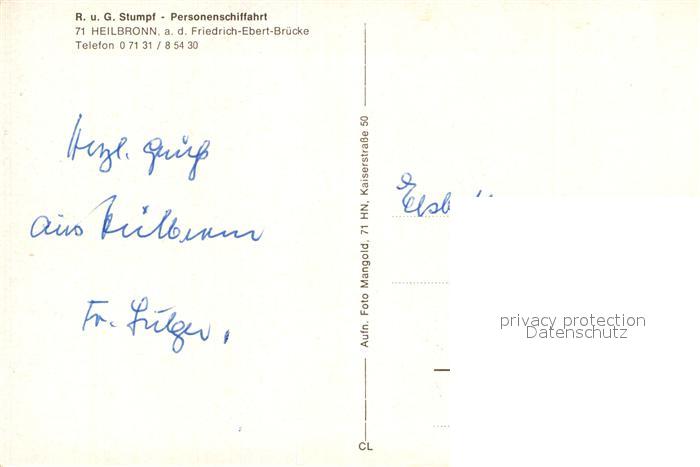 R. u. G. Stumpf - Personenschiffahrt
71 HEILBRONN, a. d. Friedrich-Ebert-Brücke
Telefon 0 71 31 / 8 54 30
Herzl. Grüße
aus Heilbronn
Fr.
Aufn. Foto Mangold, 71 HN, Kaiserstraße 50
CL
privacy protection
Datenschutz